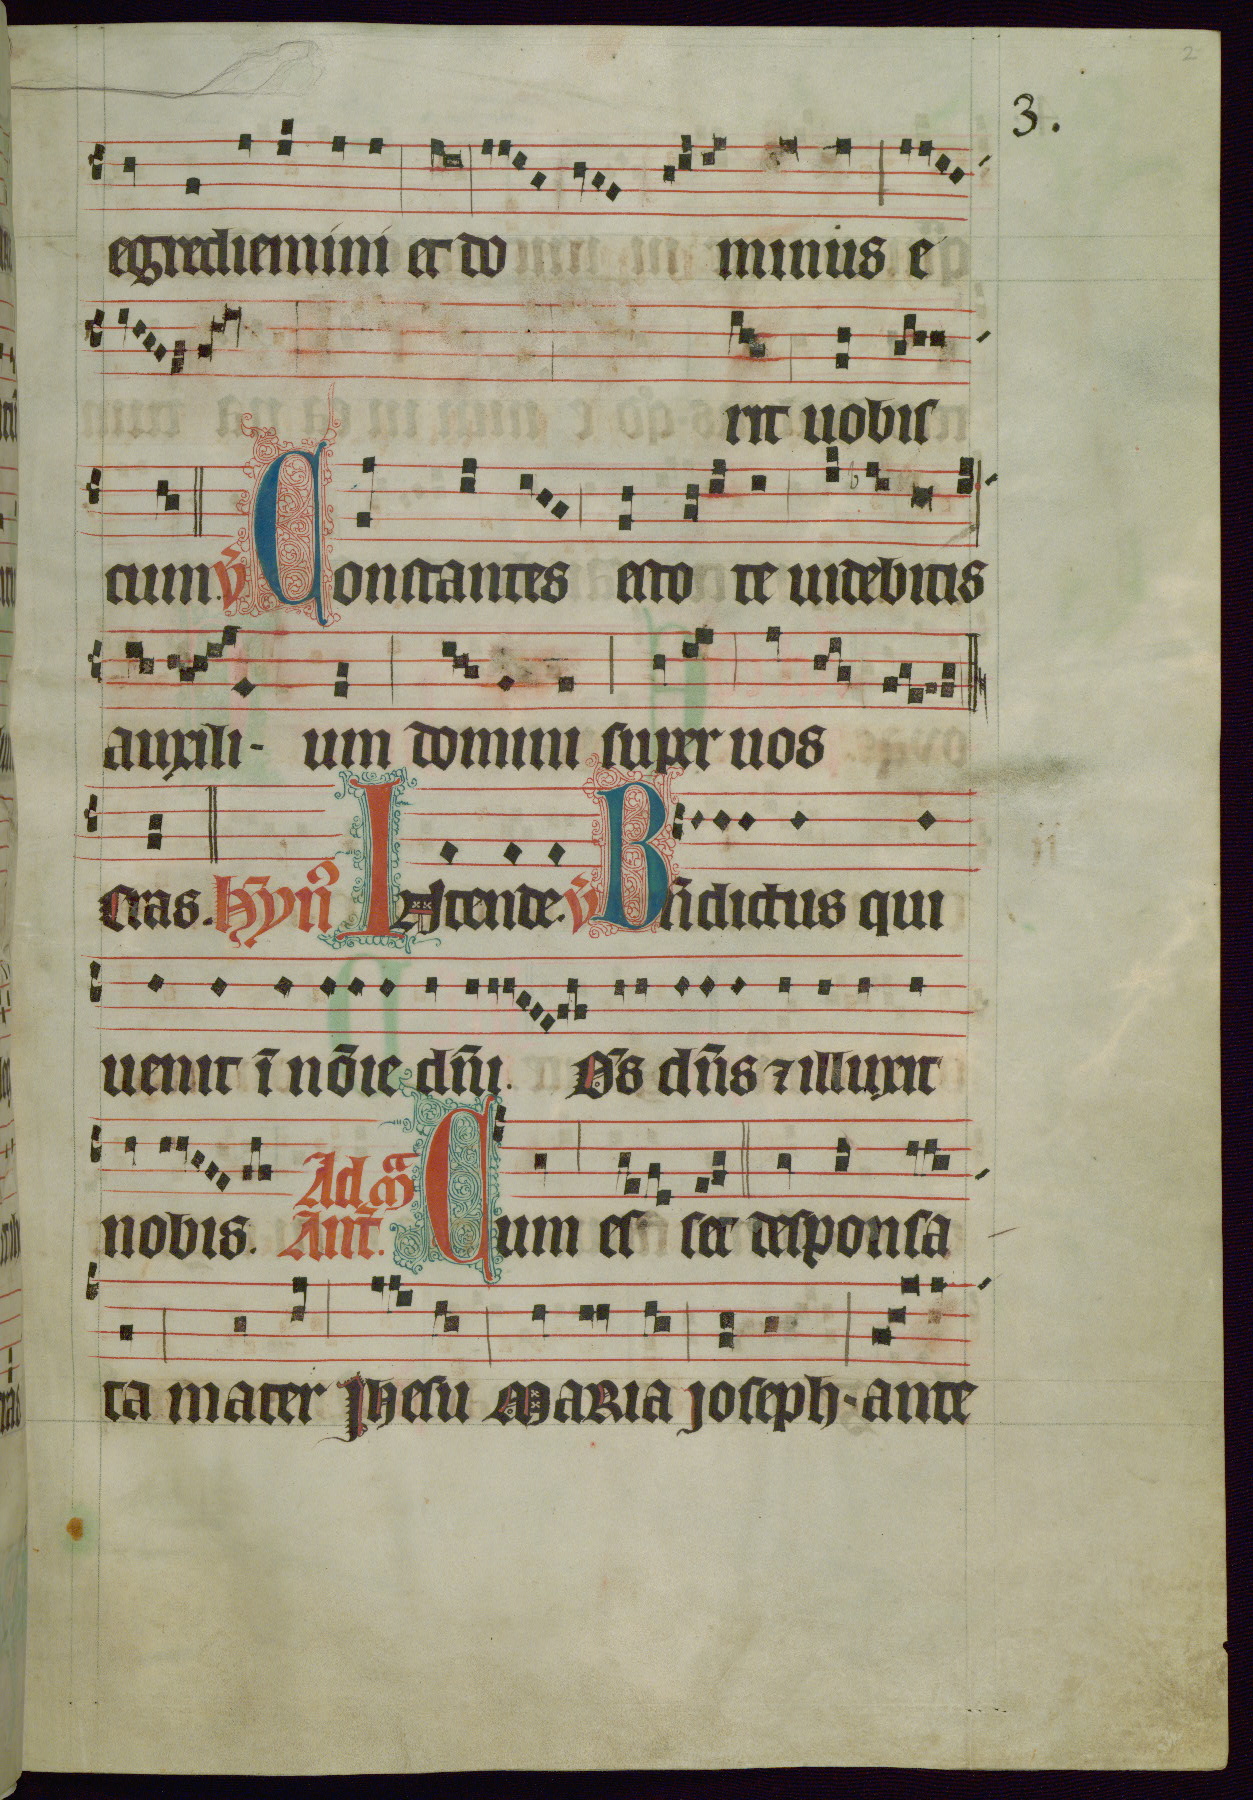 2
3.
egrediemini et do minus e
rit uobis
cum. v̄ Constantes esto te uidebitis
auxili- um domini super uos
Cras. Hyn̄ Intende. v̄ Bn̄dictus qui
uenit ī nōīe dn̄i. Ds dn̄s ⁊ illuxit
nobis. Ad mᵃ Ant̄. Cum es set desponsa
ta mater Jhesu Maria joseph. ante